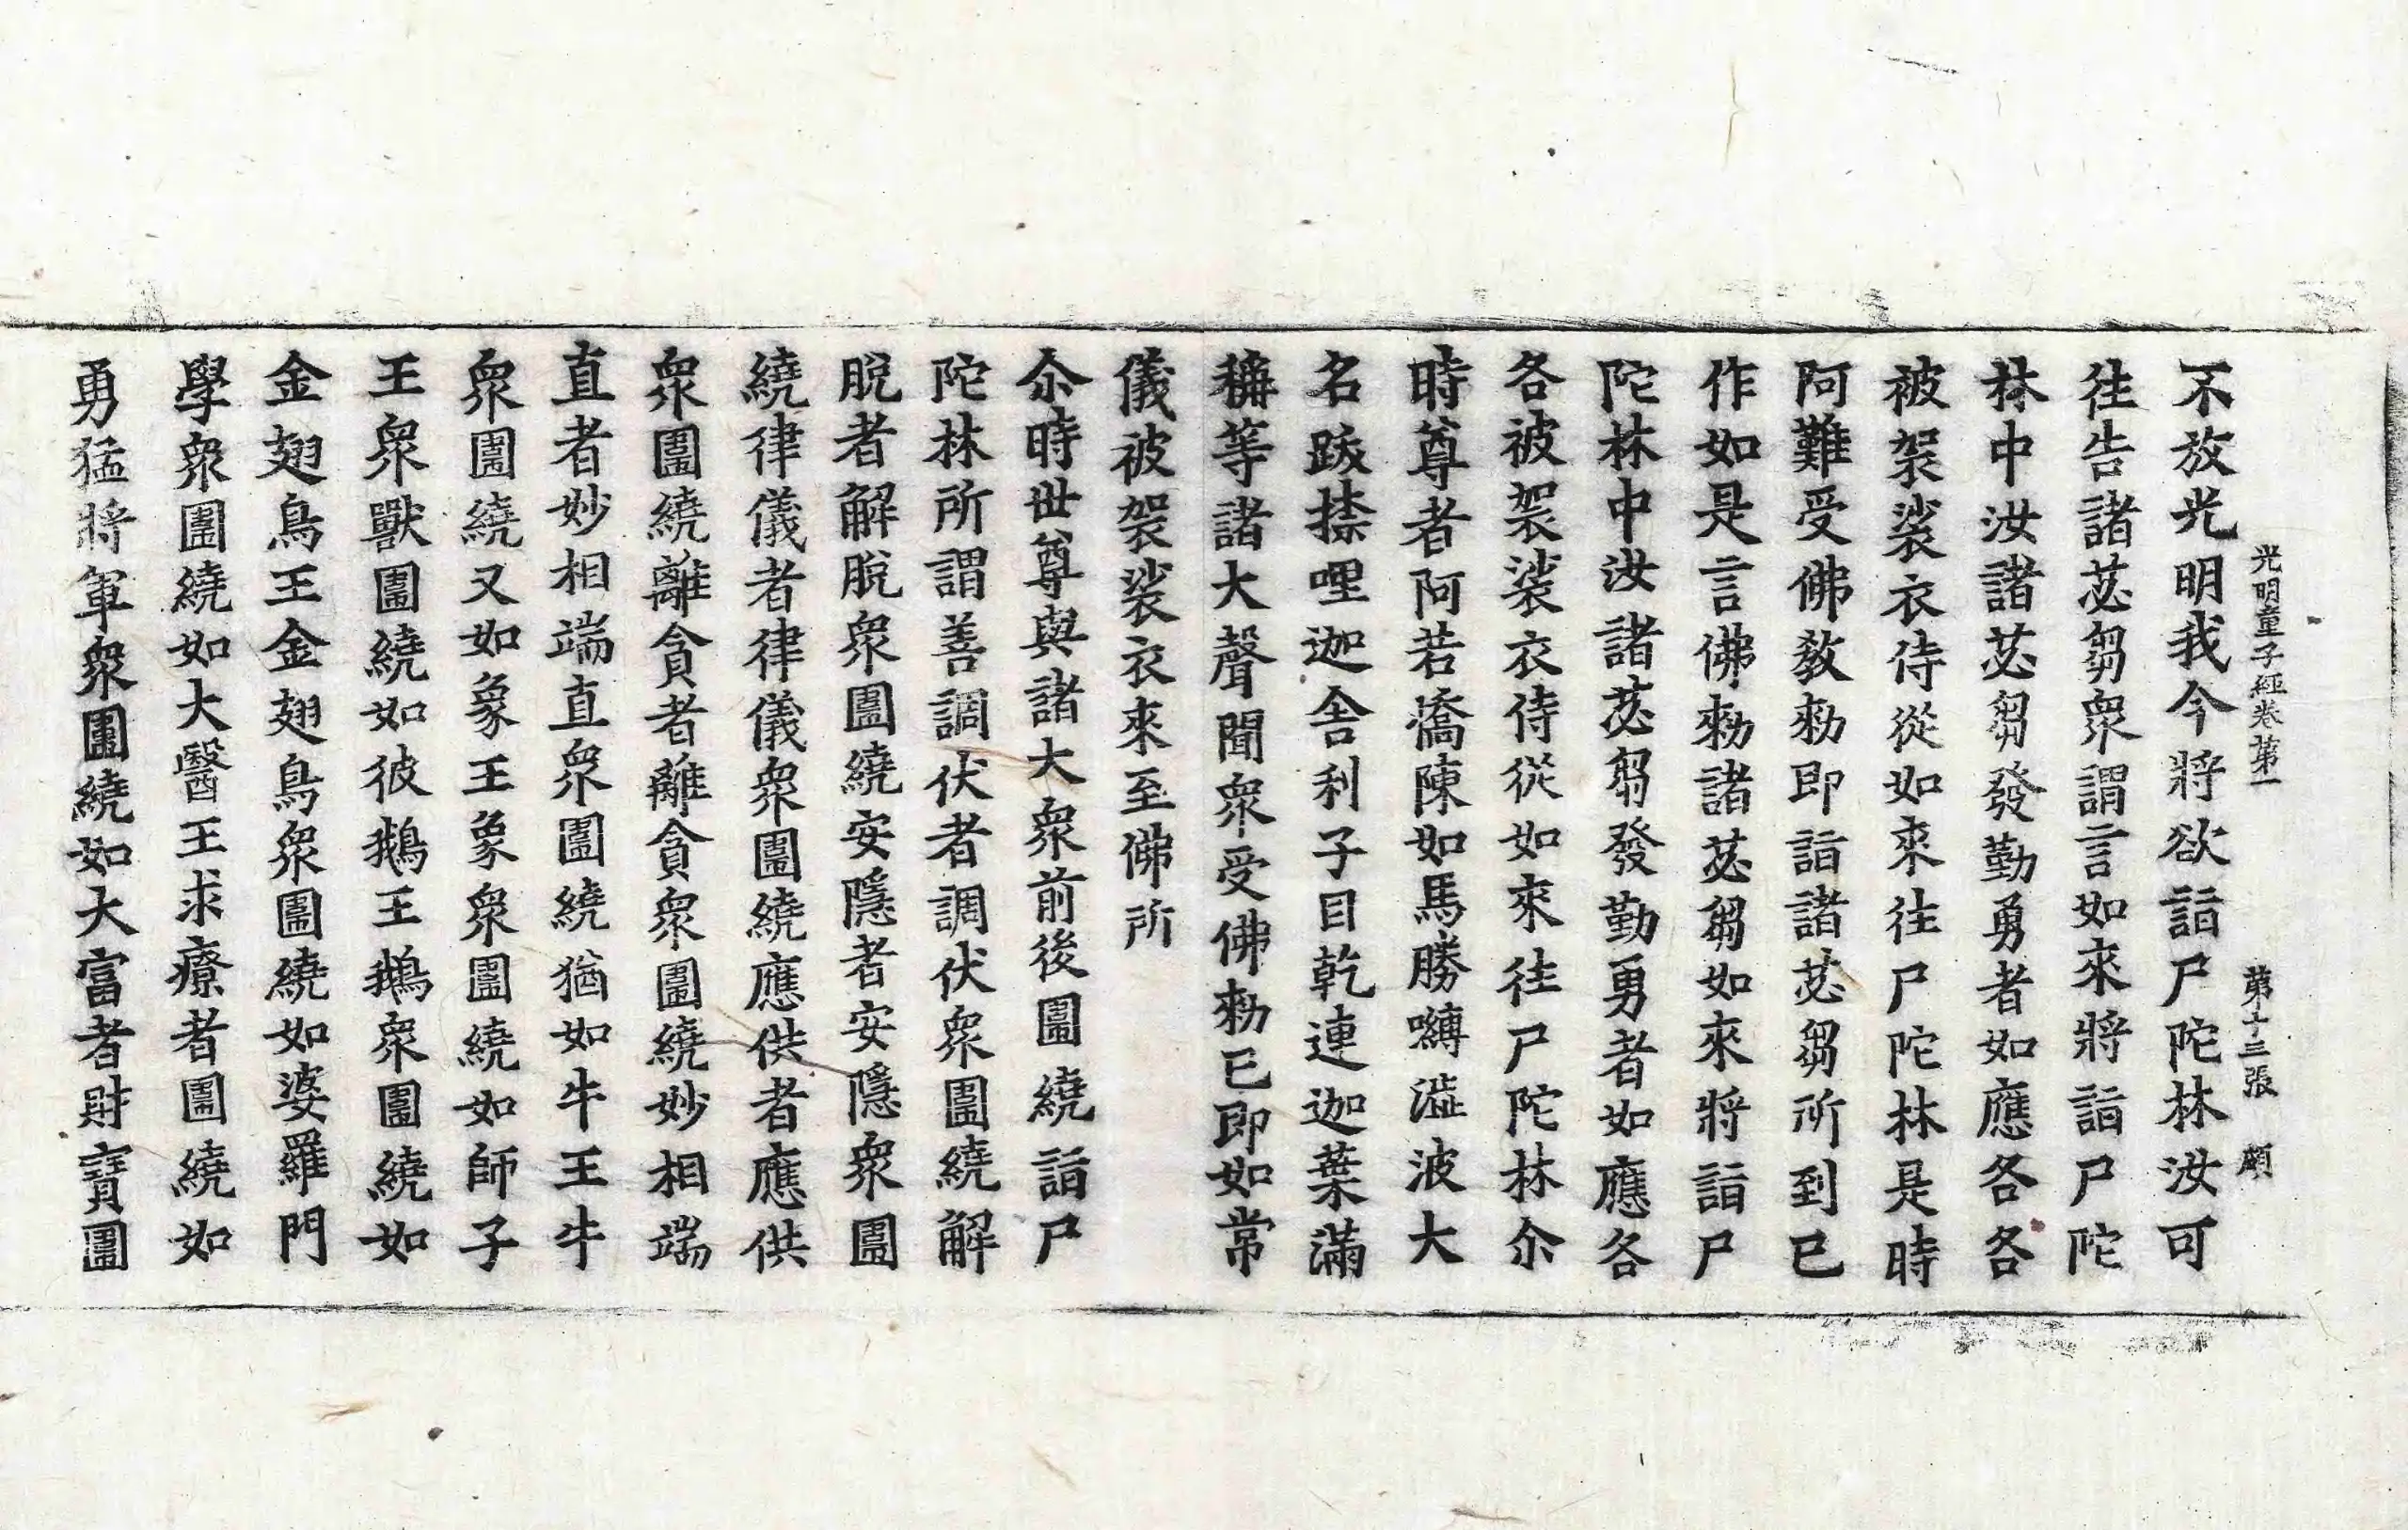 光明童子經卷第一　第十三張　頗
不放光明我今將欲詣尸陀林汝可
往告諸苾芻衆謂言如來將詣尸陀
林中汝諸苾芻發勤勇者如應各各
被袈裟衣侍從如來往尸陀林是時
阿難受佛敎勑即詣諸苾芻所到已
作如是言佛勑諸苾芻如來將詣尸
陀林中汝諸苾芻發勤勇者如應各
各被袈裟衣侍從如來往尸陀林尒
時尊者阿若憍陳如馬勝嚩澁波大
名跋捺哩迦舍利子目乾連迦葉滿
稱等諸大聲聞衆受佛勑已即如常
儀被袈裟衣來至佛所
尒時世尊與諸大衆前後圍繞詣尸
陀林所謂善調伏者調伏衆圍繞解
脫者解脫衆圍繞安隱者安隱衆圍
繞律儀者律儀衆圍繞應供者應供
衆圍繞離貪者離貪衆圍繞妙相端
直者妙相端直衆圍繞猶如牛王牛
衆圍繞又如象王象衆圍繞如師子
王衆獸圍繞如彼鵝王鵝衆圍繞如
金翅鳥王金翅鳥衆圍繞如婆羅門
學衆圍繞如大醫王求療者圍繞如
勇猛將軍衆圍繞如大富者財寶圍